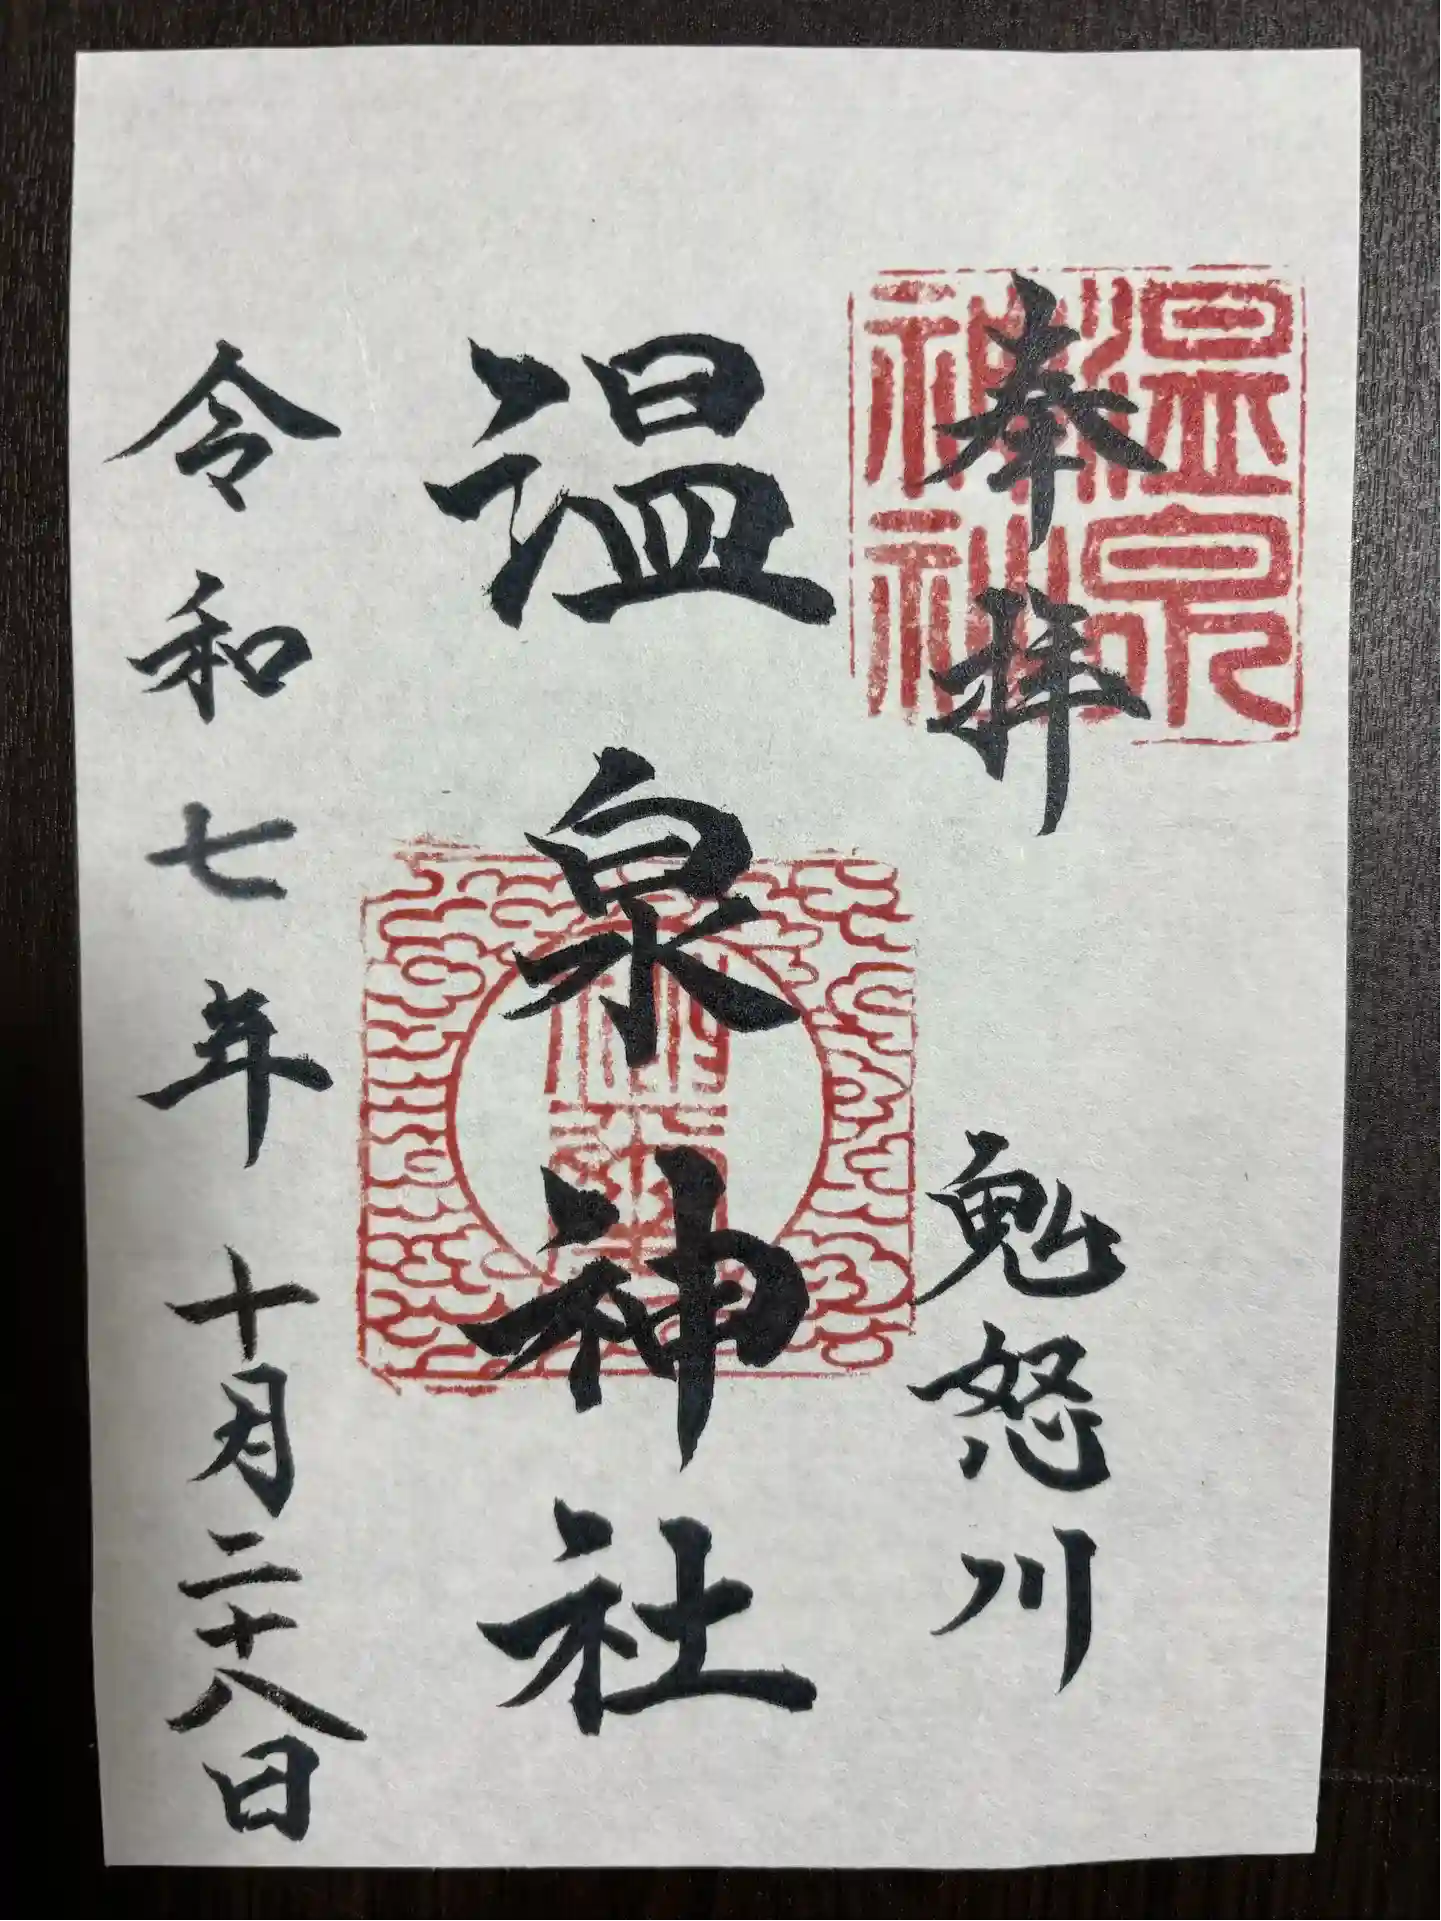 奉拝 鬼怒川
温泉神社
令和七年十月二十八日
温泉
神社